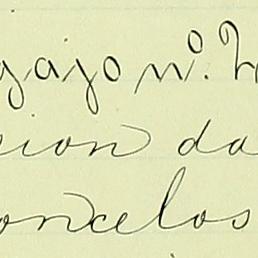 gajo nº.
sion da
oncelos